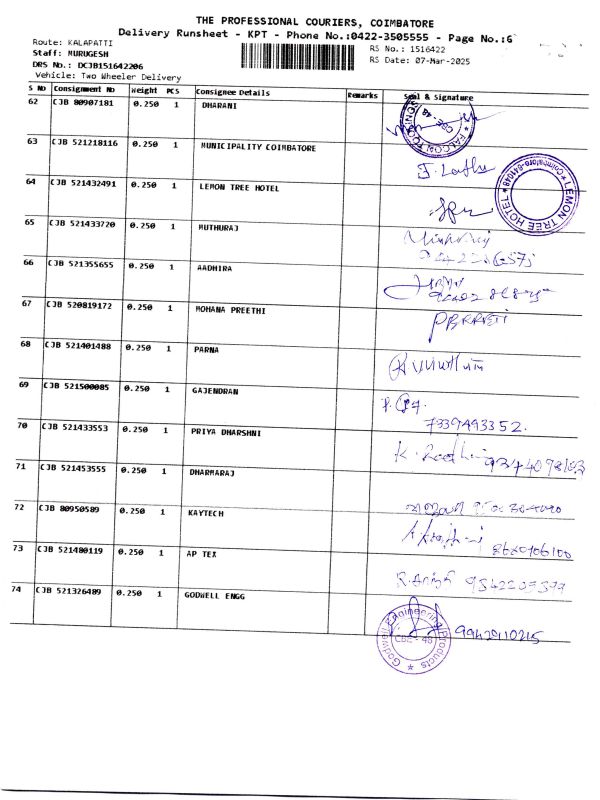 THE PROFESSIONAL COURIERS, COIMBATORE
Delivery Runsheet - KPT - Phone No.:0422-3505555 - Page No.:6
Route: KALAPATTI
RS No.: 1516422
Staff: MURUGESH
RS Date: 07-Mar-2025
DRS No.: DCJB151642206
Vehicle: Two Wheeler Delivery
S No Consignment No Weight PCS Consignee Details Remarks Seal & Signature
62 CJB 80907181 0.250 1 DHARANI
CBE-48
63 CJB 521218116 0.250 1 MUNICIPALITY COIMBATORE
64 CJB 521432491 0.250 1 LEMON TREE HOTEL
LEMON TREE HOTEL * Coimbatore-641048 *
65 CJB 521433720 0.250 1 MUTHURAJ
66 CJB 521355655 0.250 1 AADHIRA
67 CJB 520819172 0.250 1 MOHANA PREETHI
68 CJB 521401488 0.250 1 PARNA
69 CJB 521500085 0.250 1 GAJENDRAN
7339493352.
70 CJB 521433553 0.250 1 PRIYA DHARSHNI
71 CJB 521453555 0.250 1 DHARMARAJ
72 CJB 80950589 0.250 1 KAYTECH
73 CJB 521480119 0.250 1 AP TEX
74 CJB 521326489 0.250 1 GODWELL ENGG
Godwell Engineering Products * CBE - 48